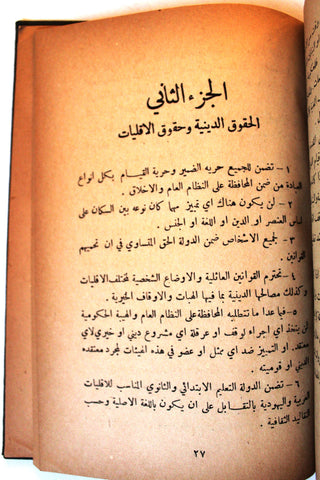 الجزء الثاني
الحقوق الدينية وحقوق الاقليات
١ – تضمن للجميع حرية الضمير وحرية القيام بكل انواع
العبادة من ضمن المحافظة على النظام العام والاخلاق .
٢ – لن يكون هناك اي تمييز مهما كان نوعه بين السكان على
اساس العنصر او الدين او اللغة او الجنس .
٣ – لجميع الاشخاص ضمن الدولة الحق المتساوي في ان تحميهم
القوانين .
٤ – يحترم القوانين العائلية والاوضاع الشخصية لمختلف الاقليات
وكذلك مصالحها الدينية بما فيها الهبات والاوقاف الخيرية .
٥ – فيما عدا ما تتطلبه المحافظة على النظام العام والهيبة الحكومية
لن يتخذ اي اجراء لوقف او عرقلة اي مشروع ديني او خيري لاي
معتقد . او التمييز ضد اي ممثل او عضو في هذه الهيئات لمجرد معتقده
الديني او قوميته .
٦ – تضمن الدولة التعليم الابتدائي والثانوي المناسب للاقليات
العربية واليهودية بالتقابل على ان يكون باللغة الاصلية وحسب
التقاليد الثقافية .
٢٧